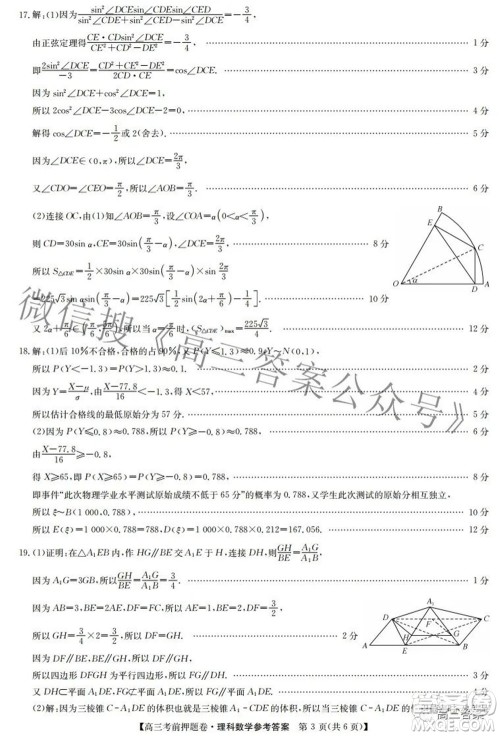 17.解:(1)因为 sin²∠DCE sin∠CDE sin∠CED / sin²∠CDE+sin²∠CED−sin²∠DCE = −3/4,
由正弦定理得 CE·CDsin²∠DCE / CE²+CD²−DE² = −3/4. 1分
即 2sin²∠DCE / −3 = CD²+CE²−DE² / 2CD·CE = cos∠DCE. 3分
因为 sin²∠DCE+cos²∠DCE=1,
所以 2cos²∠DCE−3cos∠DCE−2=0, 4分
解得 cos∠DCE=−1/2 或 2(舍去). 4分
因为∠DCE∈(0,π),所以∠DCE=2π/3,
又∠CDO=∠CEO=π/2,所以∠AOB=π/3. 6分
(2)连接 OC,由(1)知∠AOB=π/3,设∠COA=α(0<α<π/3),
则 CD=30sin α,CE=30sin(π/3−α), 8分
所以 S△CDE=1/2×30sin α×30sin(π/3−α)×sin 2π/3
=225√3sin αsin(π/3−α)=225√3[1/2sin(2α+π/6)−1/4]. 10分
又 2α+π/6∈(π/6,5π/6),所以当 α=π/6时,(S△CDE)max=225√3/4. 12分
18.解:(1)后 10%不合格,合格的占 90%,又 P(Y≤1.3)≈0.9,Y~N(0,1),
所以 P(Y<−1.3)=P(Y>1.3)≈0.1, 2分
因为 Y=X−μ/σ,由X−77.8/16<−1.3,得 X<57, 4分
所以估计合格线的最低原始分为 57 分. 5分
(2)因为 P(Y≤0.8)≈0.788,所以 P(Y≥−0.8)=0.788, 6分
由X−77.8/16≥−0.8,
得 X≥65,即 P(X≥65)=P(Y≥−0.8)=0.788, 8分
即事件“此次物理学业水平测试原始成绩不低于 65 分”的概率为 0.788,又所抽入此次测试的原始分相互独立,
所以 ξ~B(1 000,0.788), 10分
所以 E(ξ)=1 000×0.788=788,D(ξ)=1 000×0.788×0.212=167.056. 12分
19.(1)证明:在△A₁EB 内,作 HG∥BE 交 A₁E 于 H,连接 DH,则GH/BE=A₁G/A₁B. 1分
因为 A₁G=3GB,所以GH/BE=A₁G/A₁B=3/4.
因为 AB=3,BE=2AE,DF=FC,所以 BE=2,DF=3/2,
所以 GH=3/4×2=3/2,所以 DF=GH. 2分
因为 DF∥BE,BE∥GH,所以 DF∥GH.
所以四边形 DFGH 为平行四边形,所以 FG∥DH. 3分
又 DH⊂平面 A₁DE,FG⊄平面 A₁DE,所以 FG∥平面 A₁DE. 4分
(2)解:因为三棱锥 C−A₁DE 的体积等于三棱锥 A₁−CDE 的体积,所以当三棱锥 C−A₁DE 的体积最大
【高三考前押题卷·理科数学参考答案 第 3 页(共 6 页)】
微信搜《高三答案公众号》